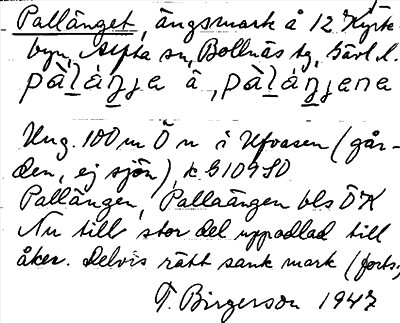 Pallänget, ängsmark å 12 Kyrk-
byn, Alfta sn, Bollnäs tg, Gävl. l.
pàlánja å, pàlánjena
Ung. 100 m Ö n i Ufvasen (går-
den, ej sjön), k. G 109 SO
Pallängen, Pallaängen bls ÖK
Nu till stor del uppodlad till
åker. Delvis rätt sank mark (forts.
T. Birgerson 1947